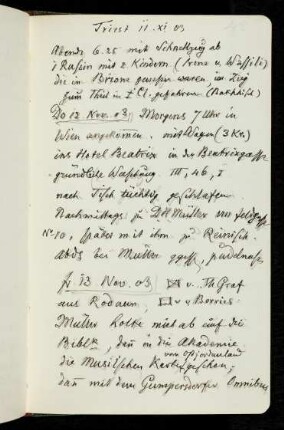 Triest 11. XI 03
Abends 6.25 mit Schnellzug ab
1 Russin mit 2 Kindern (Irene u. Wassili)
die in Brione gewesen waren, im Zug
zum Theil in I Cl. gefahren
Do 12 Nov. 03 Morgens 7 Uhr in
Wien angekommen. mit Wagen (3 Kr.)
ins Hotel Beatrix in der Beatrixgasse
gründliche Waschung III, 46, I
nach Tisch tüchtig geschlafen
Nachmittags zu DHMüller
No 10, später mit ihm zu Reinisch.
Abds bei Müller
Fr 13 Nov. 03 v. Th Graf
aus Rodaun, v. v Berries
Müller holte mich ab auf die
Bibl., dann in die Akademie
die Musilschen Karten gesehen;
vom Ostjordanland
dann mit dem Gumpendorfer Omnibus